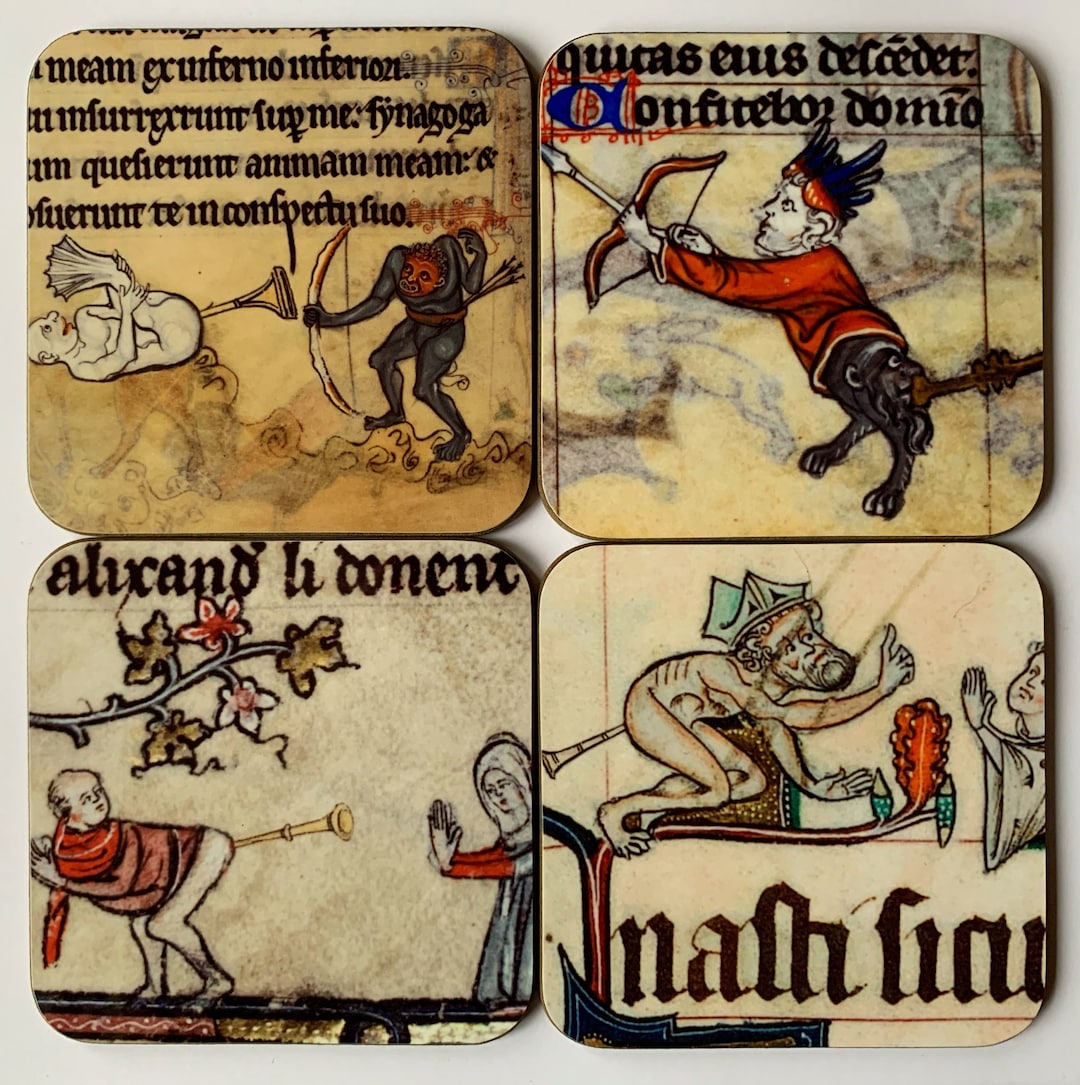 meam ex inferno inferiori.
insurrexerunt sup̱ me: synagoga
um quesierunt animam meam: &
osuerunt te in conspectu suo.
quitas eius descēdet.
Confitebor domīo
alixand' li donent
nasti sicu